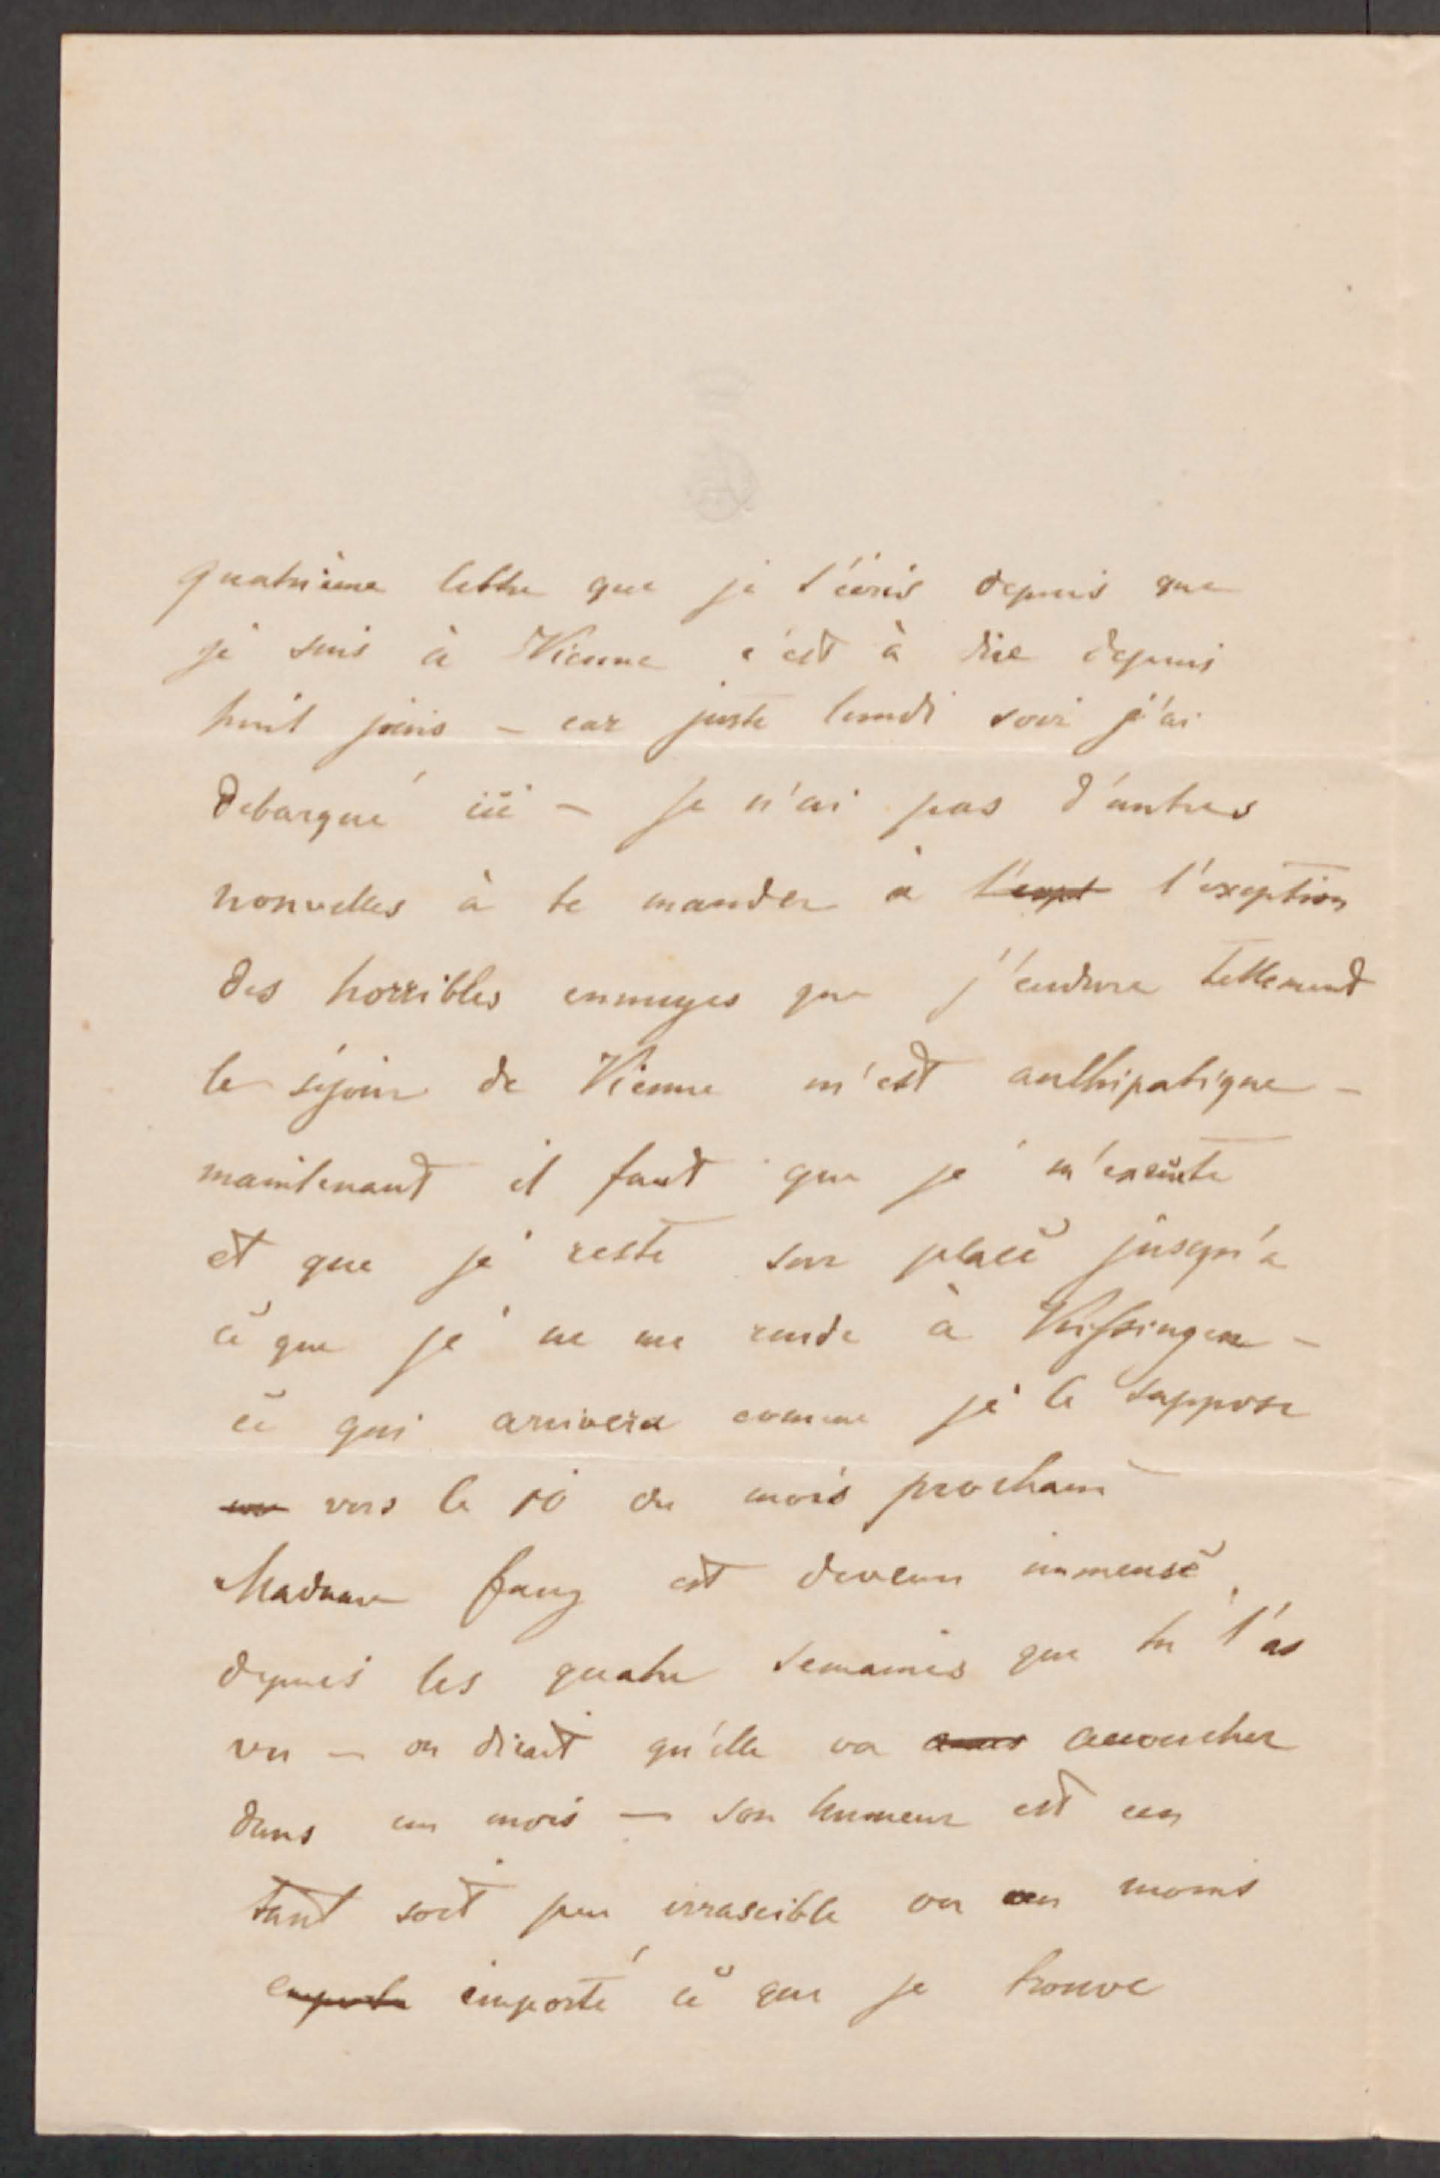 quatrième lettre que je t'écris depuis que
je suis à Vienne c'est à dire depuis
huit jours – car juste lundi soir j'ai
debarqué ici – Je n'ai pas d'autres
nouvelles à te mander à l'exept l'exeption
des horribles ennuyes que j'endure tellement
le séjour de Vienne m'est anthipatique –
maintenant il faut que je m'exécute
et que je reste sur place jusqu'a
ce que je ne me rende à Kissingen –
ce qui arrivera comme je le suppose
vers le 10 du mois prochain
Madame est devenu immense
depuis les quatre semaines que tu l'as
vu – on dirait qu'elle va accoucher
dans un mois – son humeur est un
tant soit peu irrascible ou au moins
emporté ce que je trouve